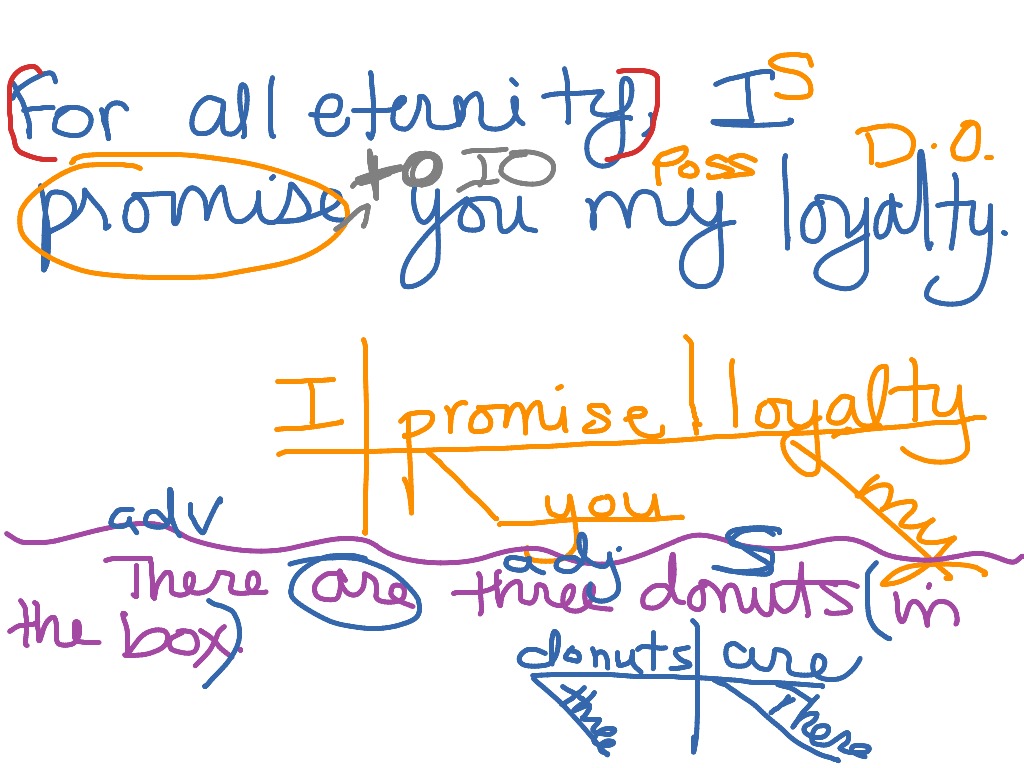 for all eternity, I S
to IO Poss D.O.
promise you my loyalty.
I promise loyalty
you my
adv adj S
There are three donuts (in
the box)
donuts are
three There